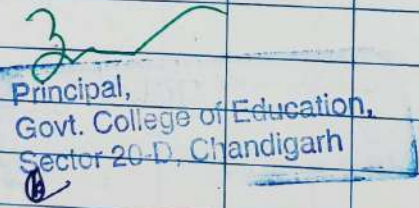 Principal,
Govt. College of Education,
Sector 20-D, Chandigarh